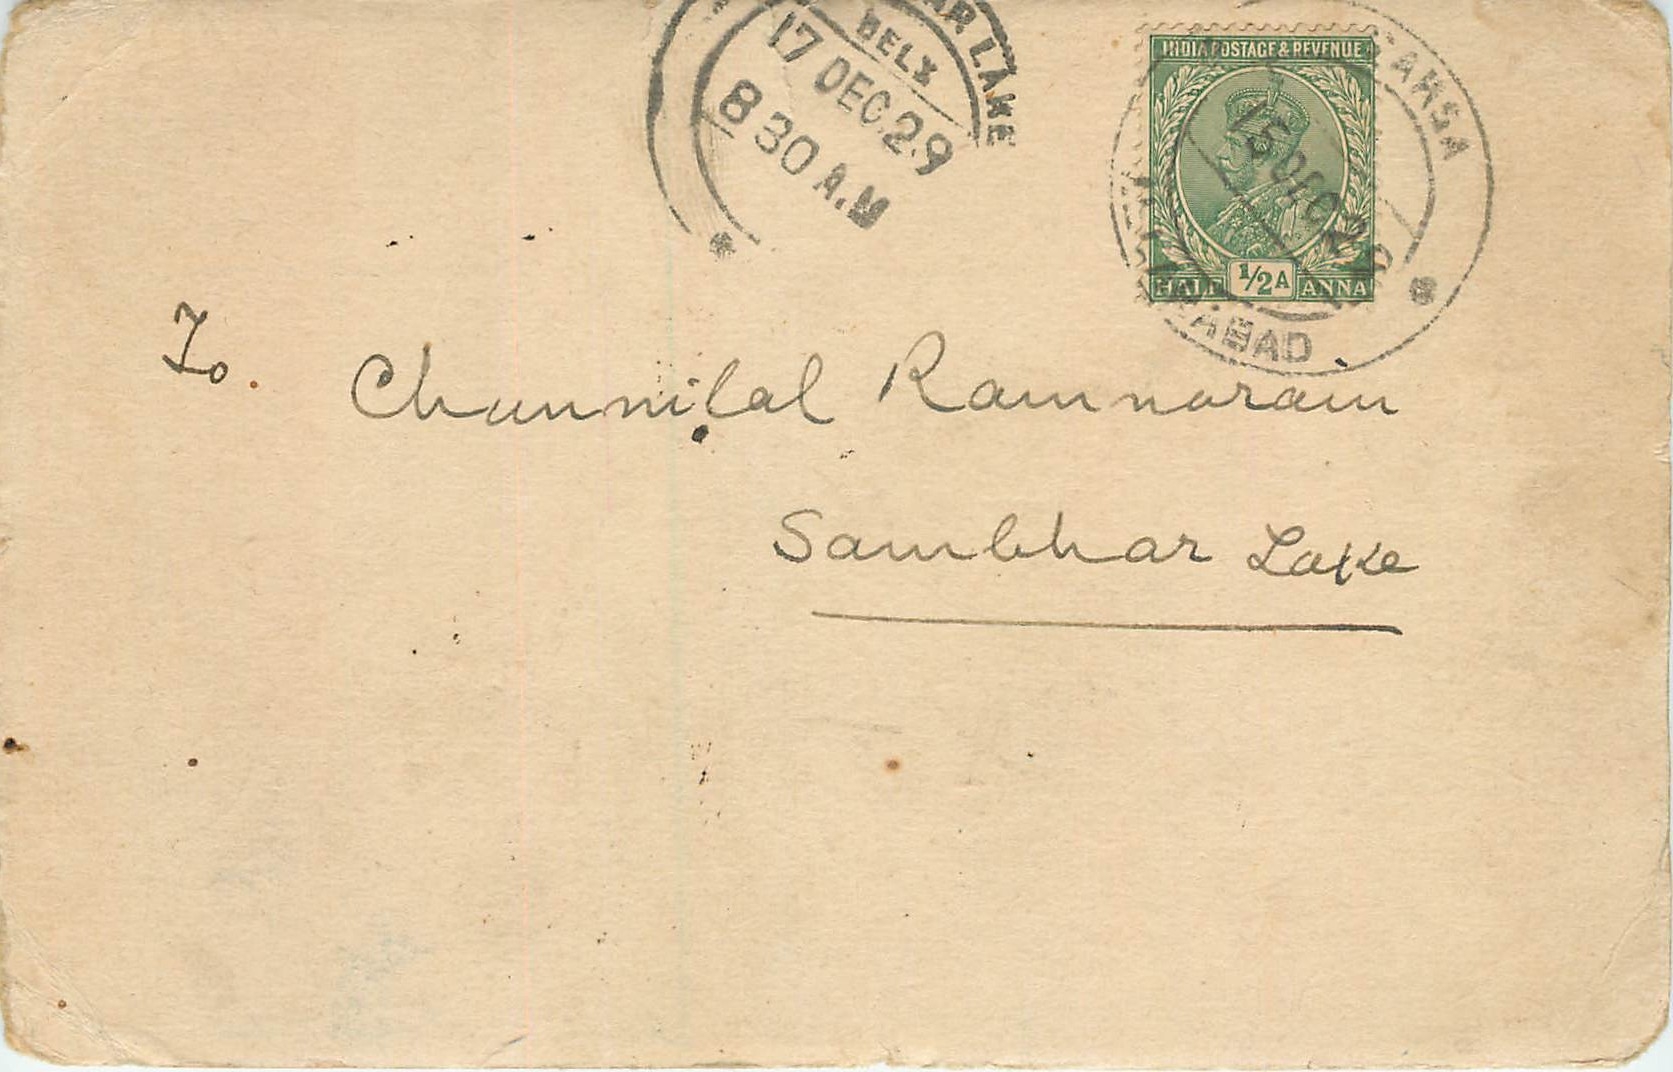 AR LAKE
DELY
17 DEC.29
8 30 A.M
INDIA POSTAGE & REVENUE
1/2 A
HALF ANNA
15 DEC 29
To.
Chunnilal Ramnarain
Sambhar Lake